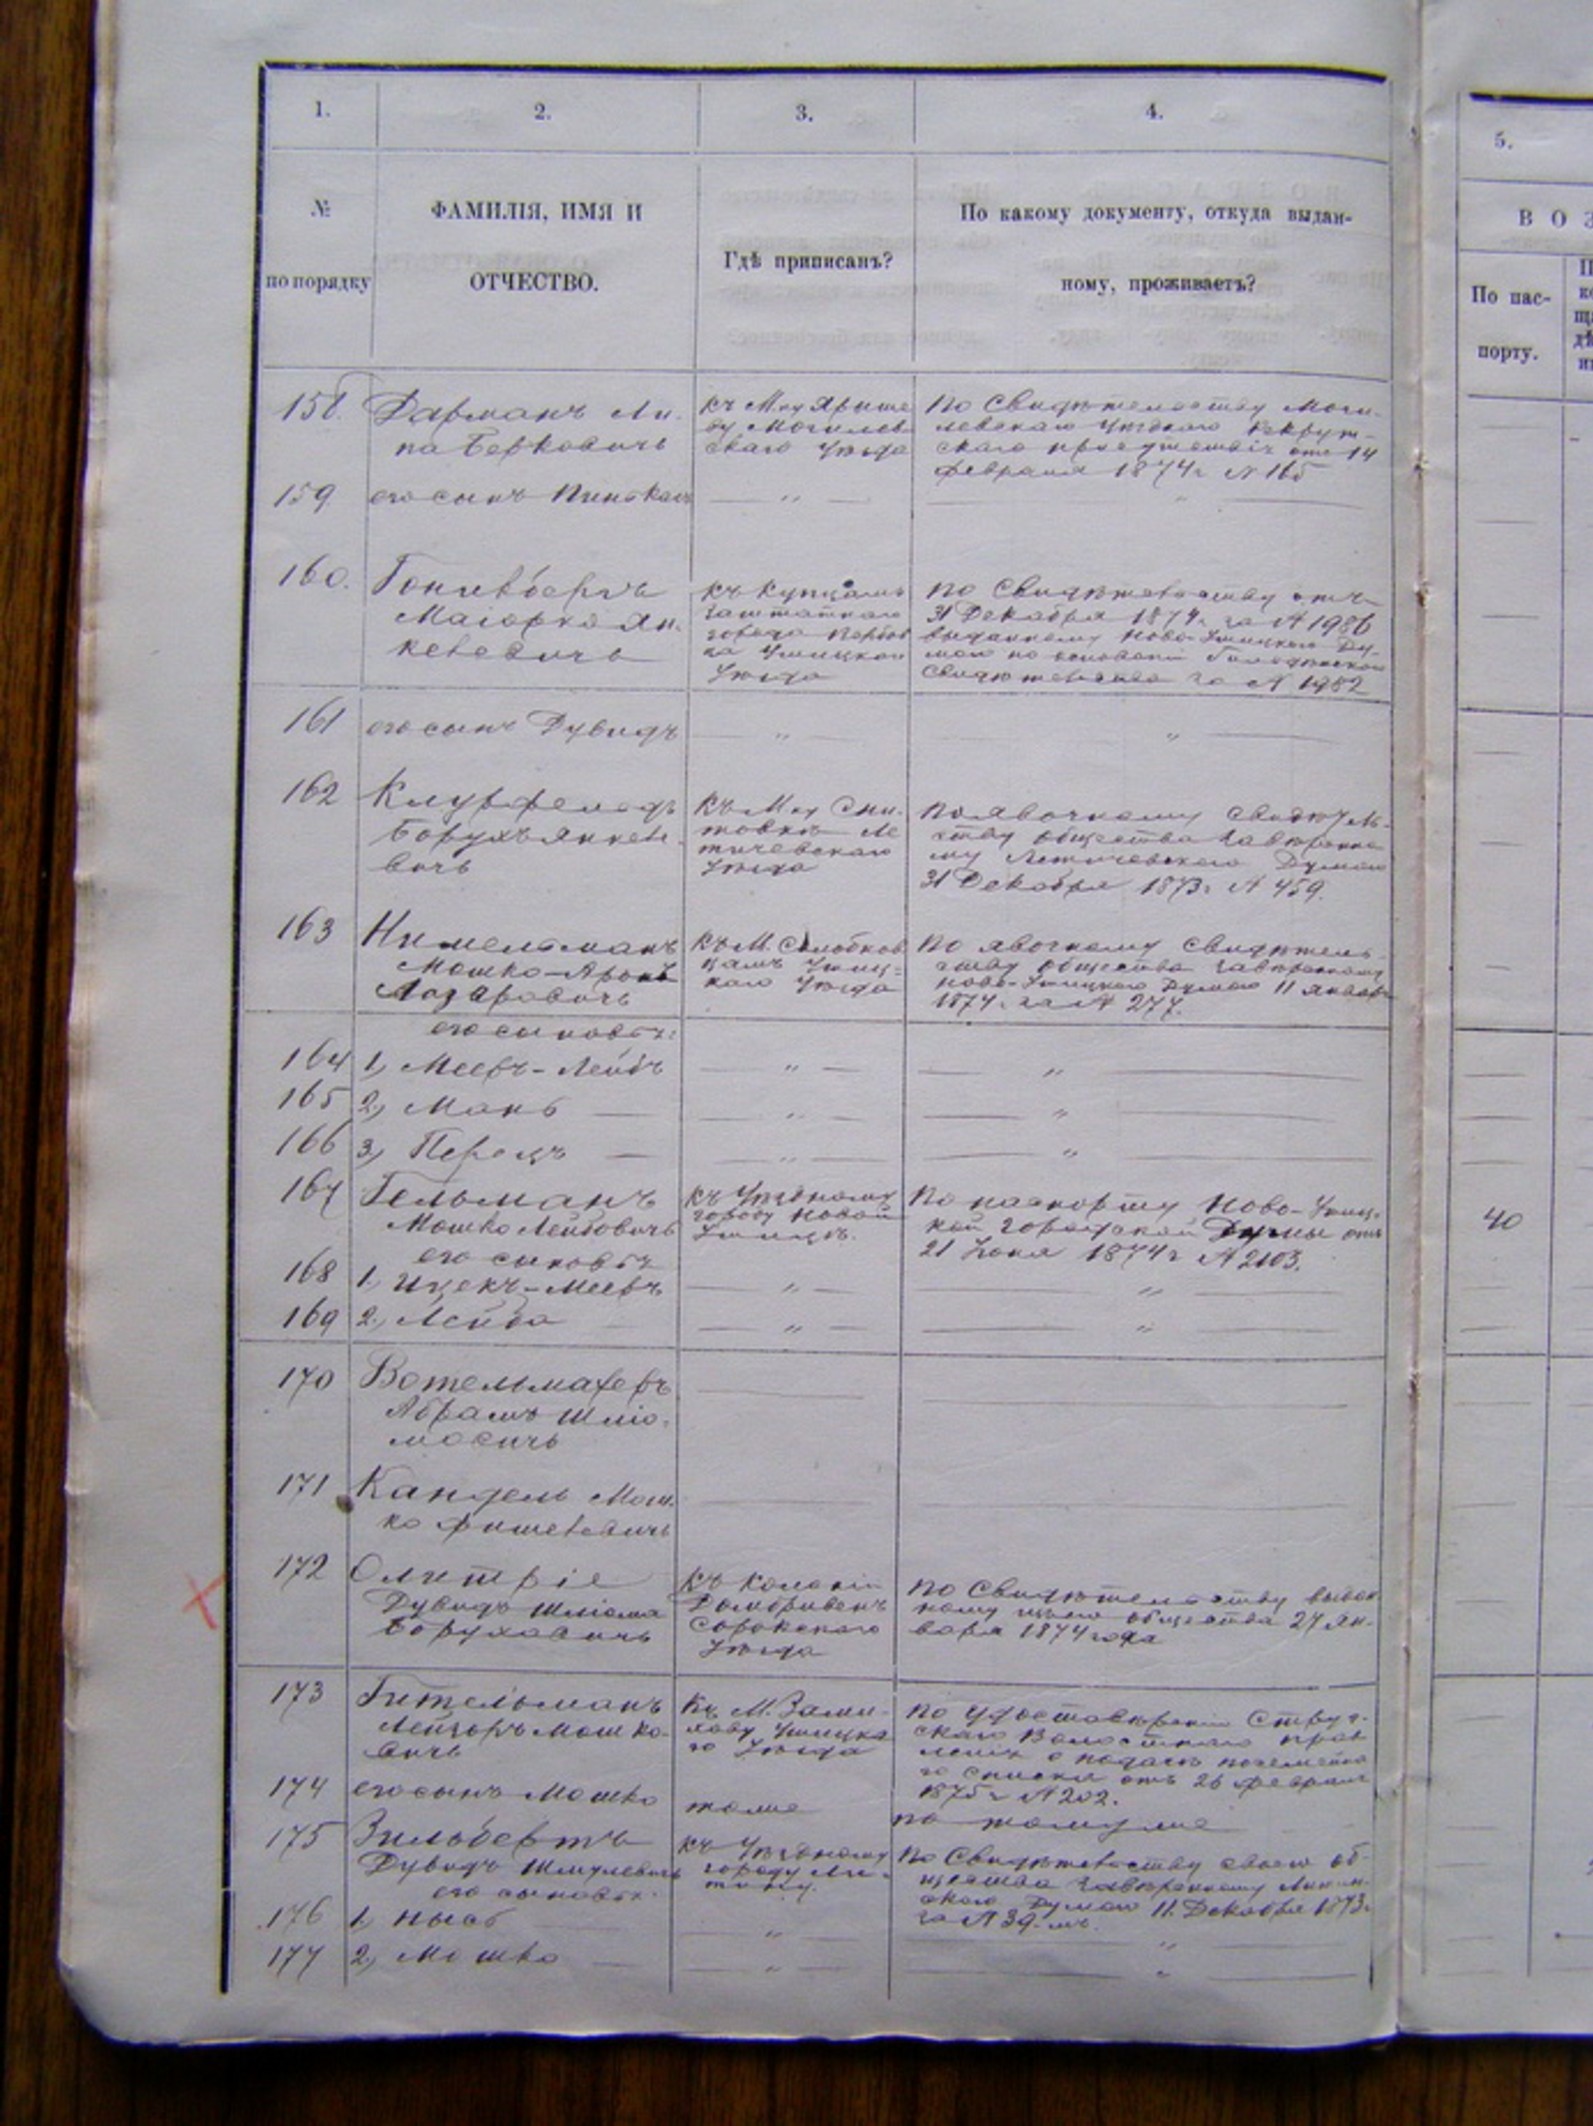 1. 2. 3. 4. 5.
№
по порядку
ФАМИЛІЯ, ИМЯ И
ОТЧЕСТВО.
Гдѣ приписанъ?
По какому документу, откуда выдан-
ному, проживаетъ?
ВОЗ
По пас-
порту.
158. Фарманъ Ли-
па Берковичъ
къ М-ку Ярыше
ву Могилев-
скаго Уѣзда
По Свидѣтельству Моги-
левскаго Уѣзднаго Рекрут-
скаго присутствія отъ 14
февраля 1874 г. №
159. его сынъ Пинкасъ — " — — " —
160.
Маіорко Ян-
келевичъ
къ Купцамъ
заштатнаго
города
Ушицкаго
Уѣзда
По Свидѣтельству отъ
31 Декабря 1874 г. за № 1986
выданному Ново-Ушицкою Ду-
мою на основаніи
Свидѣтельства за № 1982
161 его сынъ Дувидъ — " — — " —
162 Клурфельдъ
Борухъ Янкеле-
вичъ
къ М-ку Сни-
товкѣ Ле
тичевскаго
Уѣзда
По явочному свидѣтель-
ству общества завѣренно
му Летичевскою Думою
31 Декабря 1873 г. № 459.
163 Нимельманъ
Мошко-Аронъ
Лазаровичъ
къ М. Солобков
цамъ Ушиц-
каго Уѣзда
По явочному свидѣтель-
ству общества завѣренному
Ново-Ушицкою Думою 11 Января
1874 г. за № 277.
его сыновья:
164 1, Мееръ-Лейбъ — " — — " —
165 2, Мань — — " — — " —
166 3, Перецъ — — " — — " —
167 Гельманъ
Мошко Лейбовичъ
къ Уѣздному
городу Новой
Ушицѣ.
По паспорту Ново-Ушиц-
кой Городской Думы отъ
21 Іюня 1874 г. № 2103.
40
его сыновья
168 1, Ицекъ-Мееръ — " — — " —
169 2, Лейба — " — — " —
170 Вотельмахеръ
Абрамъ Шліо-
мовичъ
171 Кандель Мош-
ко Фишелевичъ
172
Дувидъ Шліома
Боруховичъ
къ Колоніи
Домбровенъ
Сорокскаго
Уѣзда
По Свидѣтельству выдан
ному общества 27 Ян-
варя 1874 года
173 Гительманъ
Лейзоръ Мошко-
вичъ
къ М. Зами-
хову Ушицка
го Уѣзда
По Удостовѣренію Струг-
скаго Волостнаго прав
ленія о подачѣ посемейна
го списка отъ 26 февраля
1875 г. № 202.
174 его сынъ Мошко тоже по тому же
175 Зильбертъ
Дувидъ Шмулевичъ
къ Уѣздному
городу Ли-
тину.
По Свидѣтельству своего об-
щества завѣренному Литин-
скою Думою 11 Декабря 1873 г.
за № 39-мъ.
его сыновья:
176 1, Нысь — " — — " —
177 2, Мошко — — " — — " —